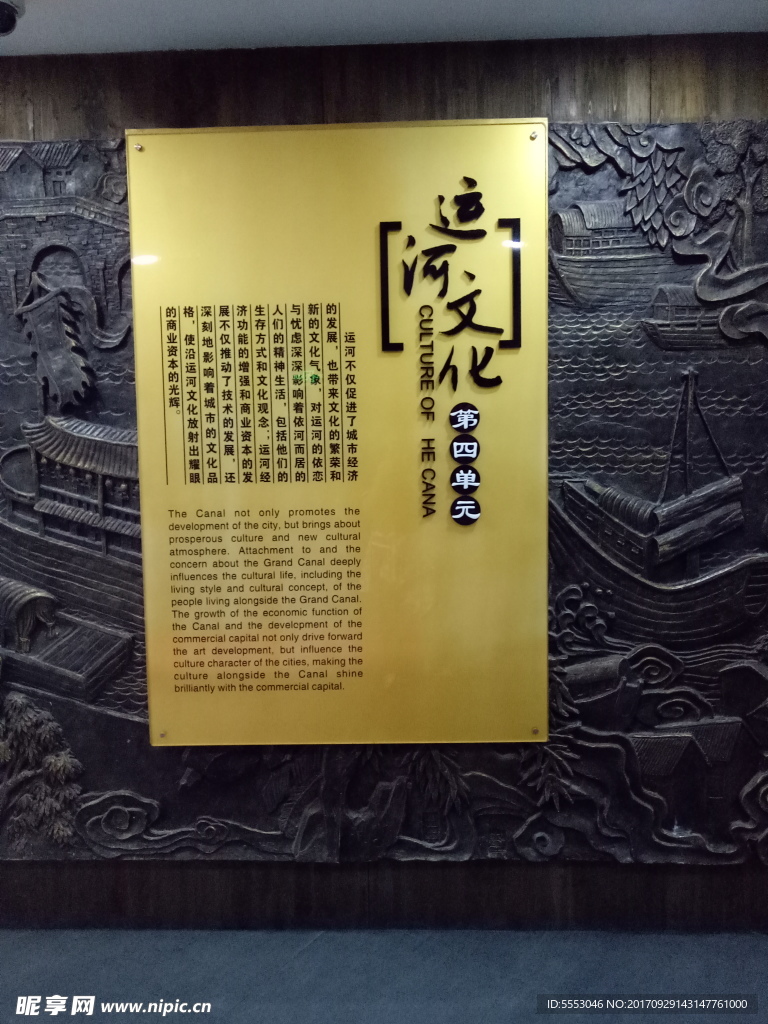 运河文化
CULTURE OF HE CANA
第四单元
运河不仅促进了城市经济
的发展，也带来文化的繁荣和
新的文化气象，对运河的依恋
与忧虑深深影响着依河而居的
人们的精神生活，包括他们的
生存方式和文化观念；运河经
济功能的增强和商业资本的发
展不仅推动了技术的发展，还
深刻地影响着城市的文化品
格，使沿运河文化放射出耀眼
的商业资本的光辉。
The Canal not only promotes the
development of the city, but brings about
prosperous culture and new cultural
atmosphere. Attachment to and the
concern about the Grand Canal deeply
influences the cultural life, including the
living style and cultural concept, of the
people living alongside the Grand Canal.
The growth of the economic function of
the Canal and the development of the
commercial capital not only drive forward
the art development, but influence the
culture character of the cities, making the
culture alongside the Canal shine
brilliantly with the commercial capital.
昵享网 www.nipic.cn
ID:5553046 NO:20170929143147761000